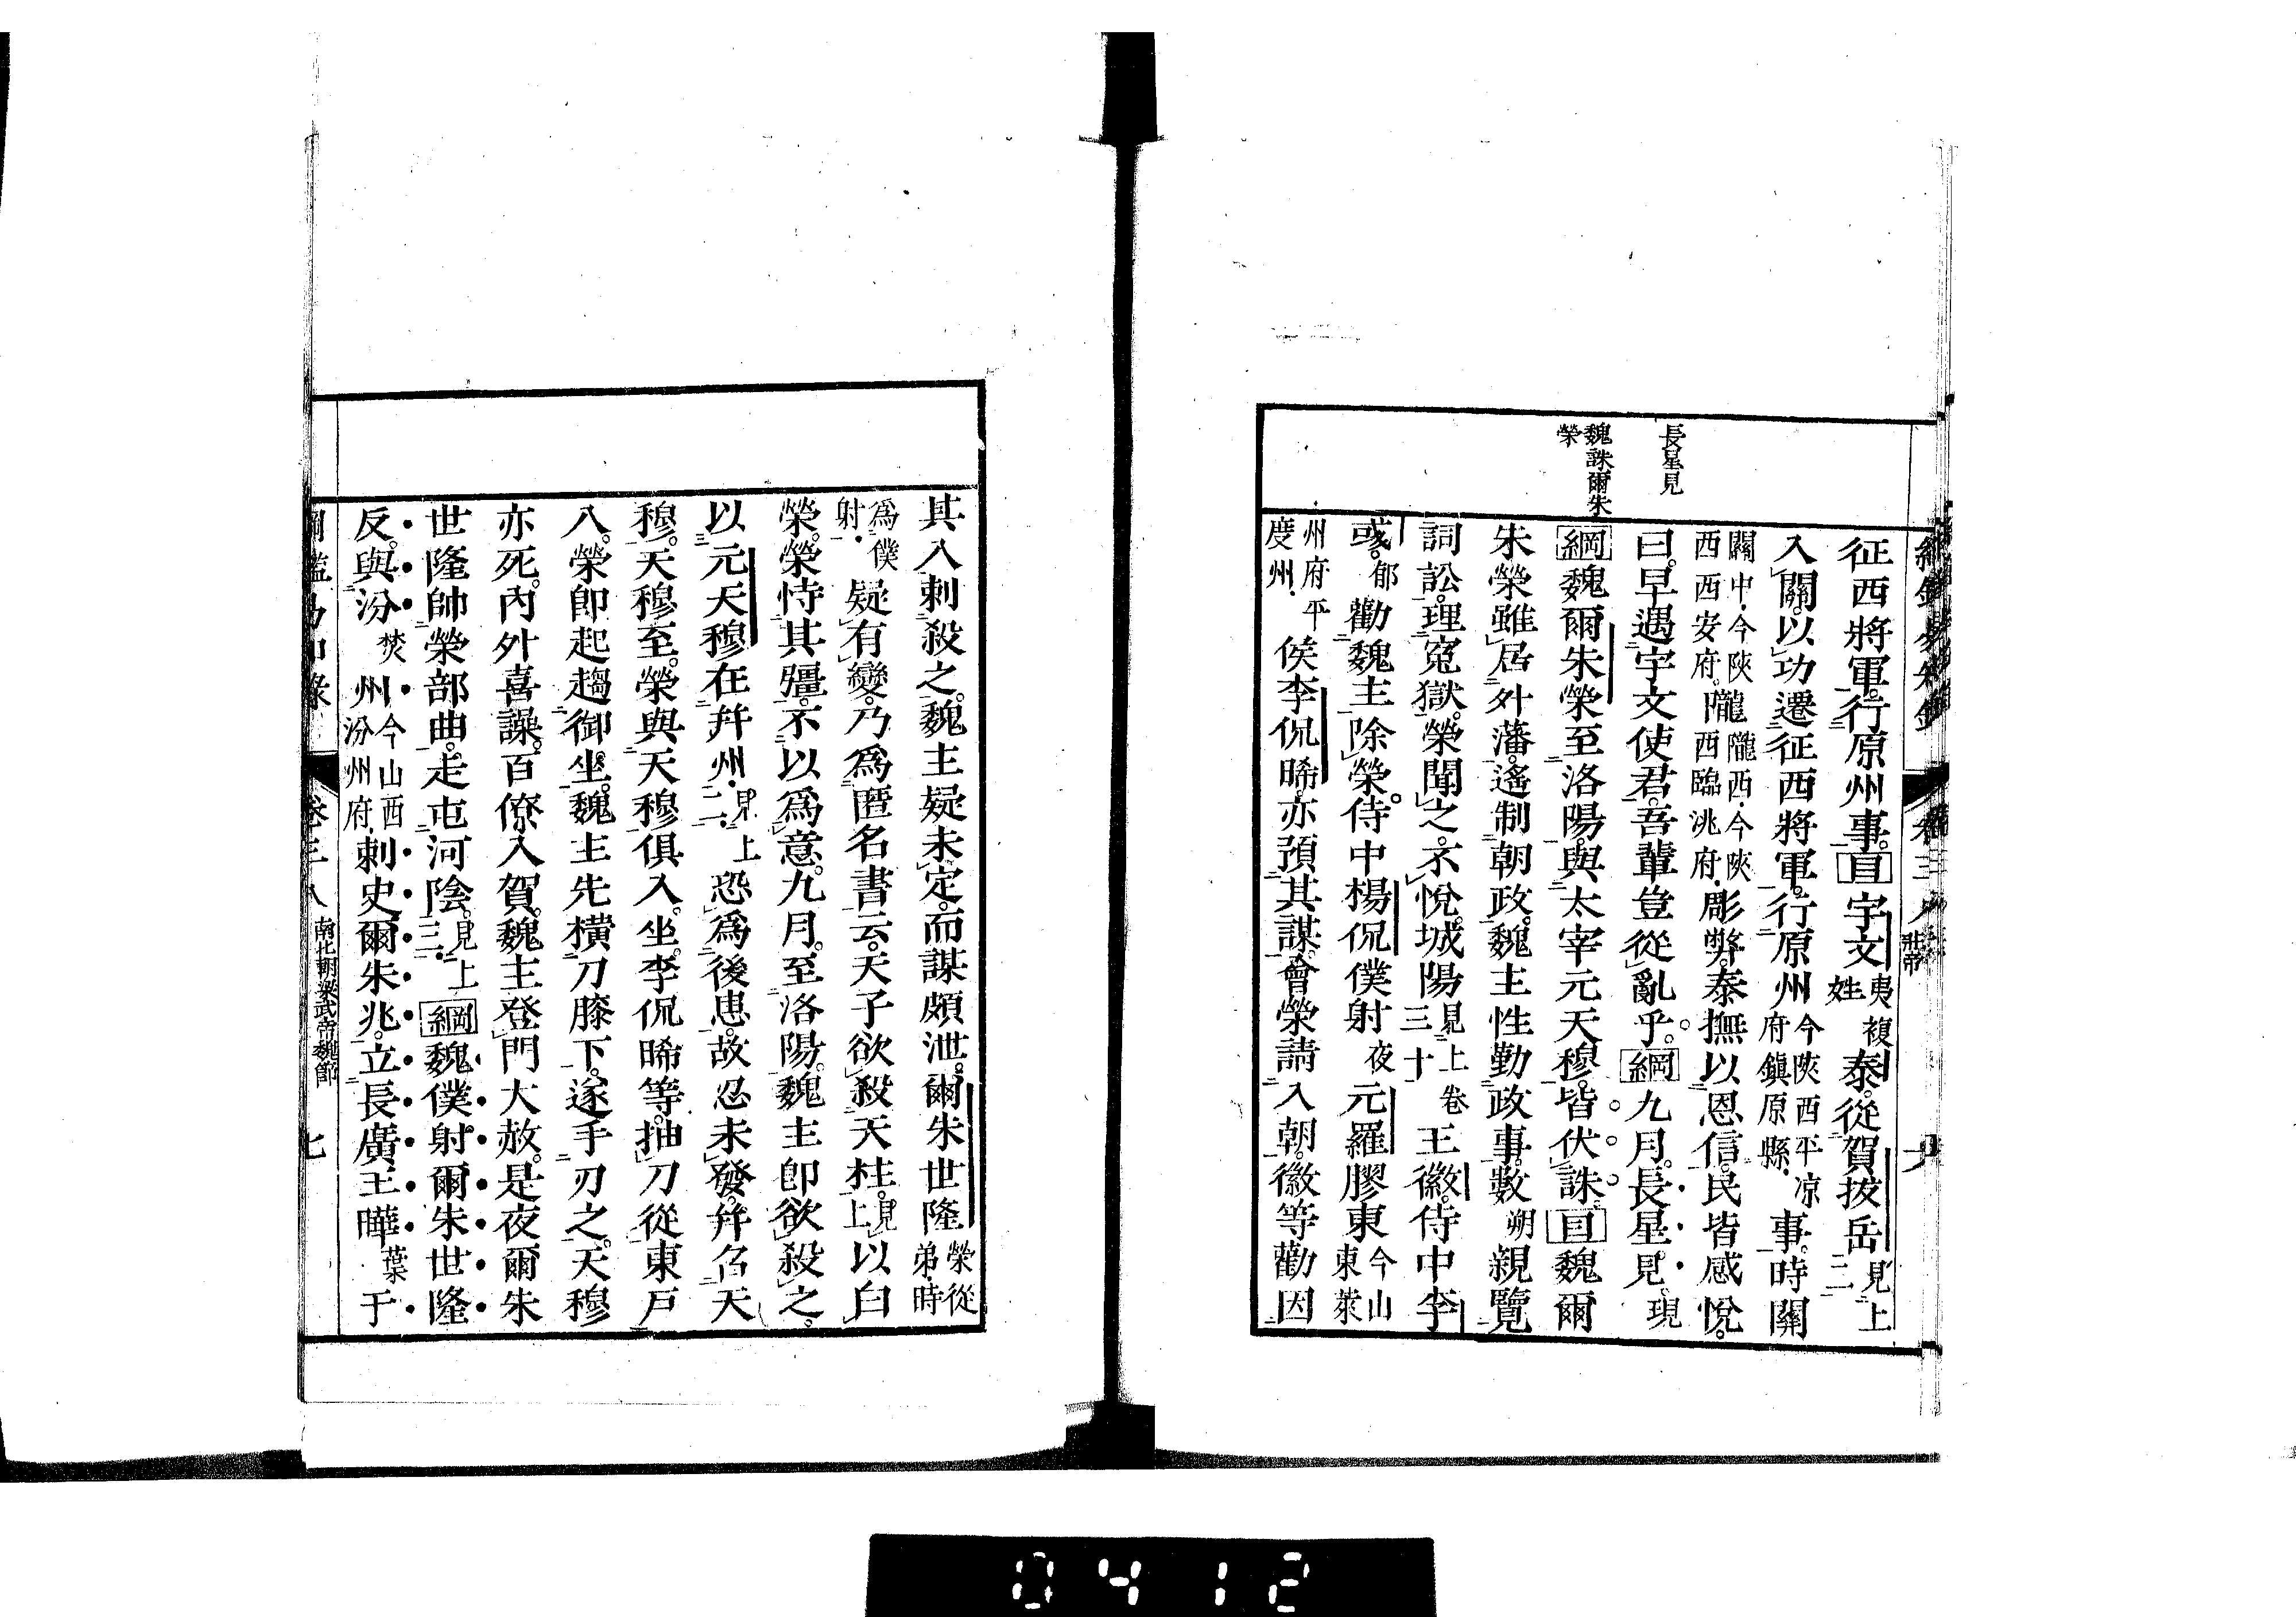 長星見
魏誅爾朱
榮
征西將軍。行原州事。目宇文夷複姓泰。從賀拔岳見上二
入關。以功遷征西將軍。行原州今陝西平涼府鎭原縣事。時關
關中今陝西西安府。隴隴西今陝西臨洮府彫弊。泰撫以恩信。民皆感悅。
曰。早遇宇文使君。吾輩豈從亂乎。綱九月。長星見。現
綱魏爾朱榮至洛陽。與太宰元天穆。皆伏誅。目魏爾
朱榮雖居外藩。遙制朝政。魏主性勤政事。數朔親覽
詞訟。理寃獄。榮聞之。不悅。城陽見上卷三十王徽。侍中李
彧。郁勸魏主除榮。侍中楊侃僕射夜元羅膠東今山東萊
州府平度州侯李侃晞。亦預其謀。會榮請入朝。徽等勸因
其入刺殺之。魏主疑未定。而謀頗泄。爾朱世隆榮從弟時
爲僕射疑有變。乃爲匿名書云。天子欲殺天柱。見上以白
榮。榮恃其彊。不以爲意。九月。至洛陽。魏主卽欲殺之。
以元天穆在幷州。見上二恐爲後患。故忍未發。幷召天
穆。天穆至。榮與天穆俱入。坐。李侃晞等。抽刀從東戶
入。榮卽起趨御坐。魏主先橫刀膝下。遂手刃之。天穆
亦死。內外喜譟。百僚入賀。魏主登門大赦。是夜爾朱
世隆帥榮部曲。走屯河陰。見上三綱魏僕射爾朱世隆
反。與汾焚州今山西汾州府刺史爾朱兆。立長廣王曄葉于
卷三八 南北朝梁武帝魏節 七
0412